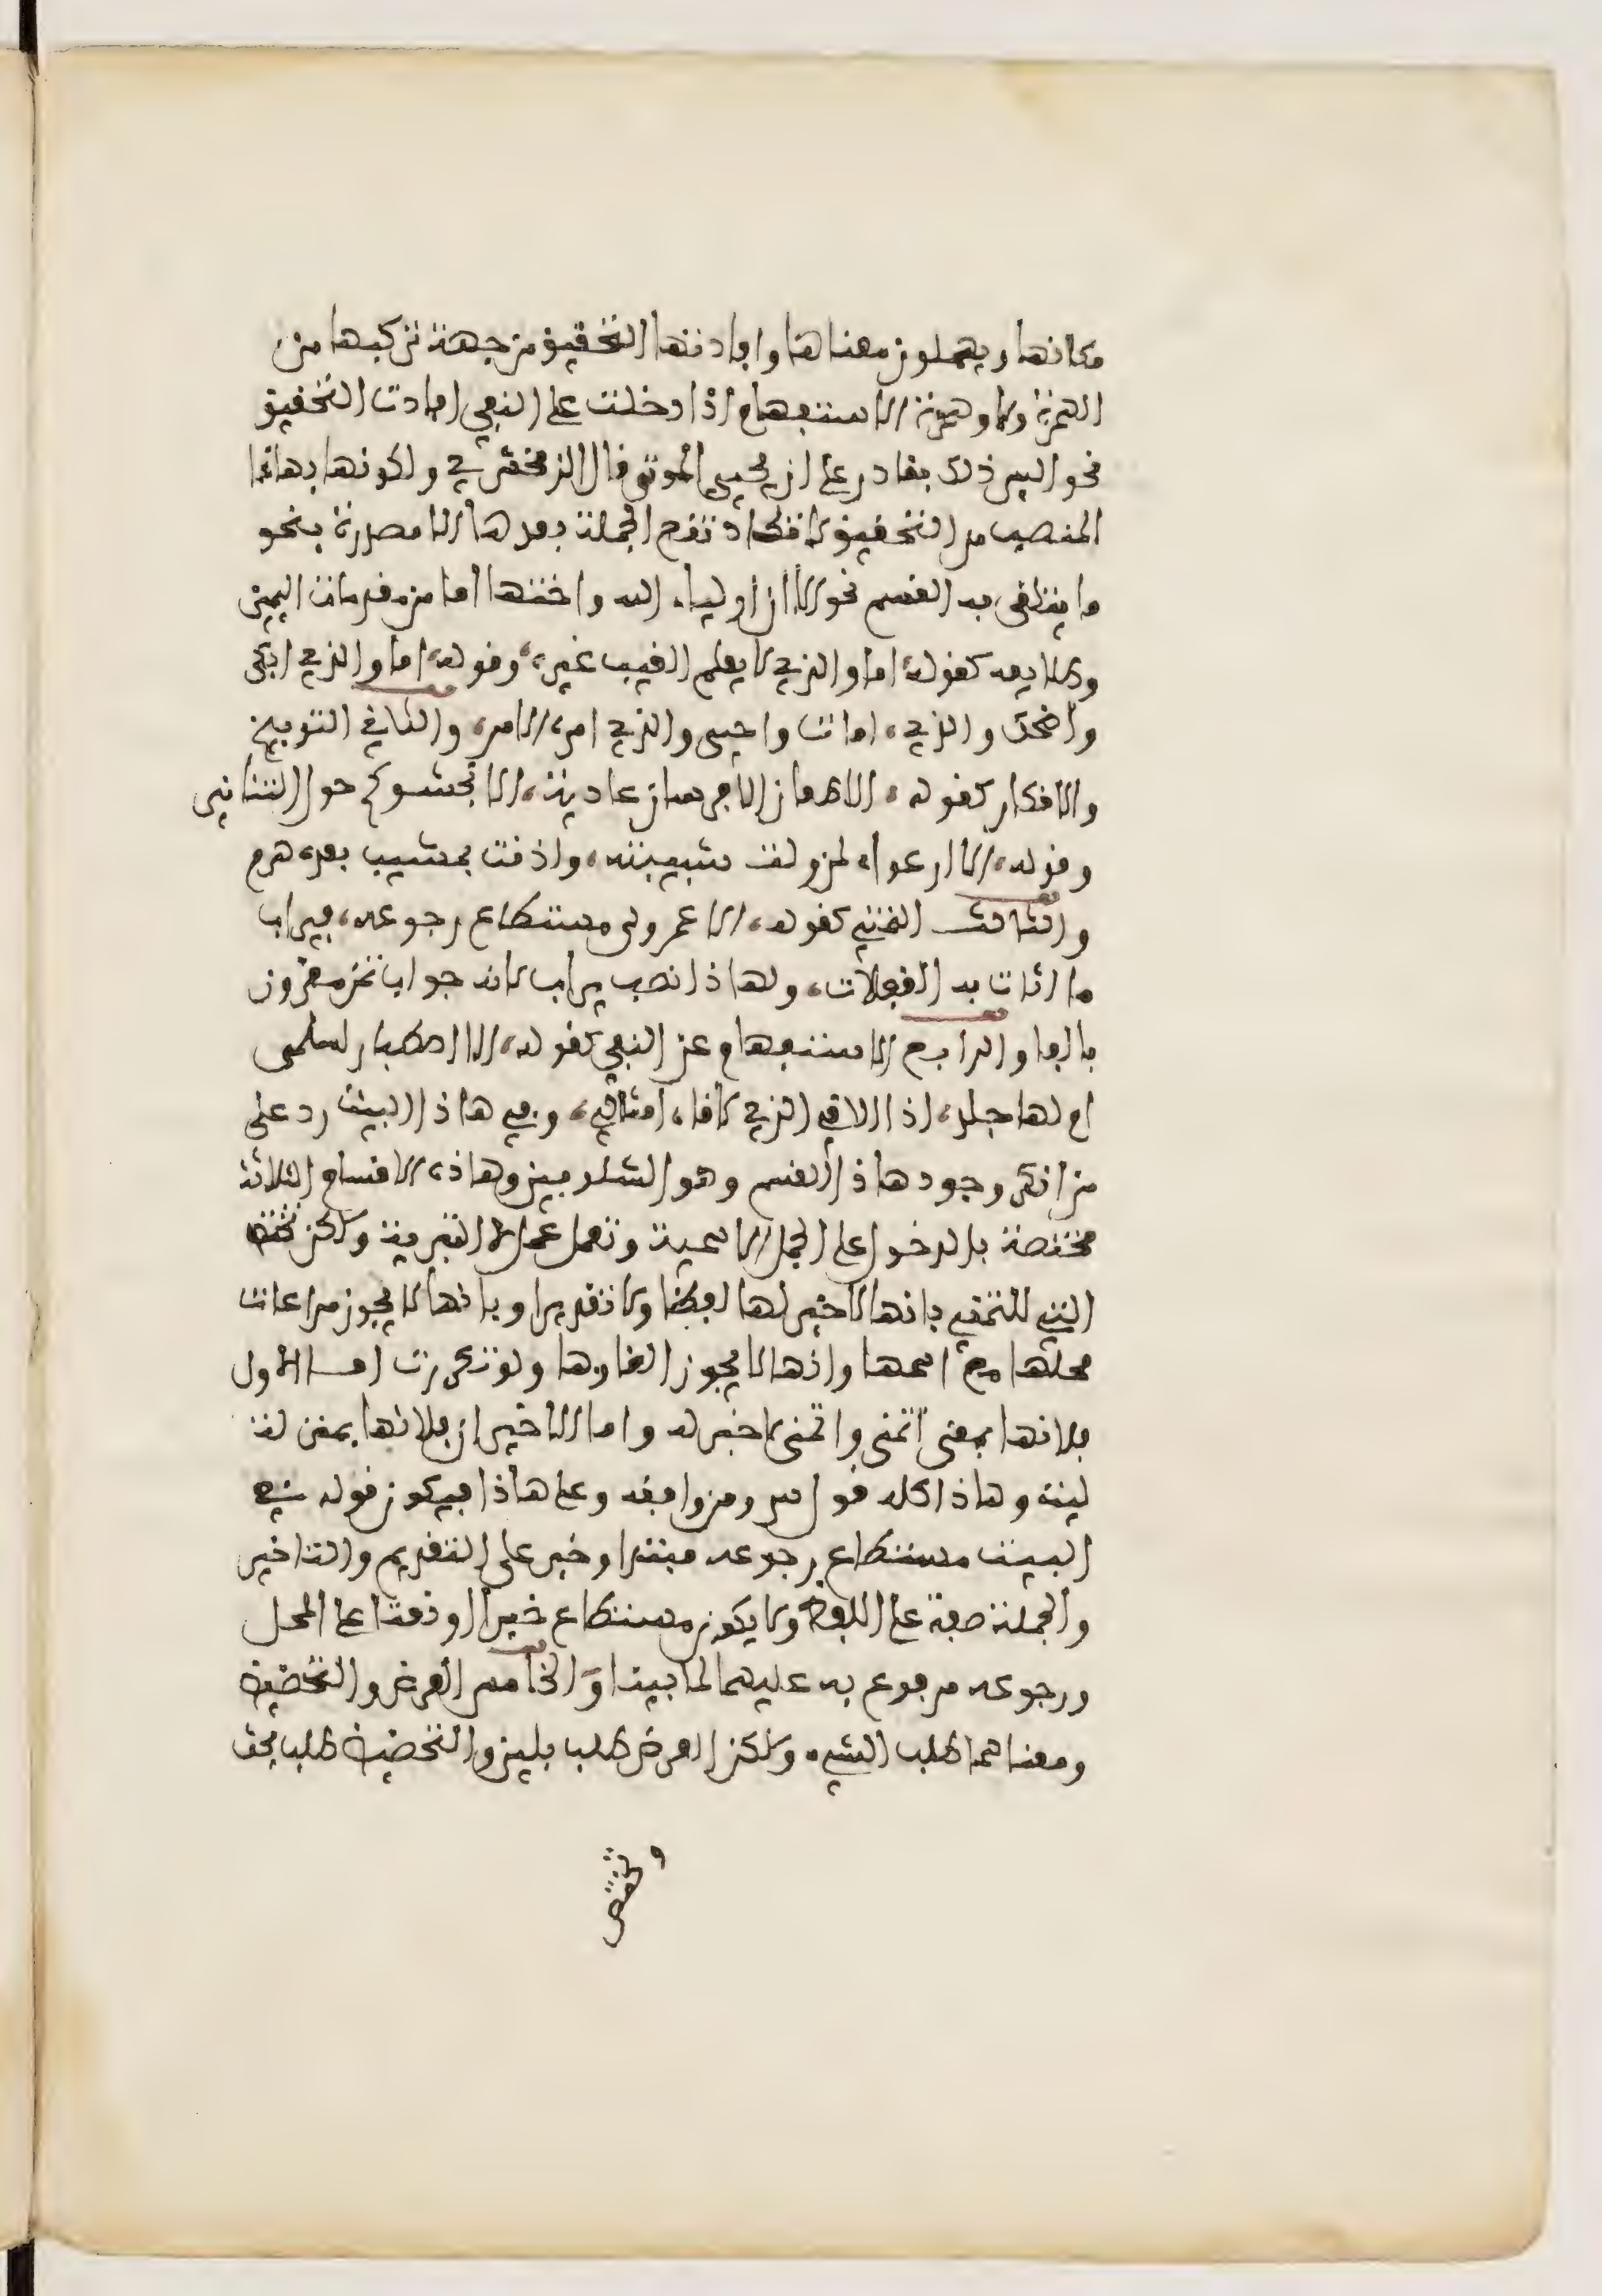 مكانها ويهملون معناها وافادتها التحقيق من جهة تركبها من
الهمزة ولا وهمزة الاستفهام اذا دخلت على النفي افادت التحقيق
نحو اليس ذلك بقادر على ان يحيي الموتى قال الزمخشري ولكونها بهاذا
المنصب من التحقيق لا تكاد تقع الجملة بعدها الا مصدرة بنحو
ما يتلقى به القسم نحو الا ان اولياء الله واختها اما من مقدمات اليمين
وطلايعه كقوله، اما والذي لا يعلم الغيب غيره، وقوله، اما والذي ابكى
واضحك والذي، امات واحيى والذي امره الامر، والثاني التوبيخ
والانكار كقوله، الا طعان الا فرسان عادية، الا تجشوكم حول التنانير
وقوله، الا ارعواء لمن ولت شبيبته، واذنت بمشيب بعده هرم
والثالث التمني كقوله، الا عمر ولى مستطاع رجوعه، فيراب
ما اثات يد الغفلات، ولهاذا نصب يراب لانه جواب تمن مقرون
بالفا والرابع الاستفهام عن النفي كقوله، الا اصطبار لسلمى
ام لها جلد، اذا الاقي الذي لاقاه امثالي، وفي هاذا البيت رد على
من انكر وجود هاذا القسم وهو الشلوبين وهاذه الاقسام الثلاثة
مختصة بالدخول على الجمل الاسمية وتعمل عمل لا التبرية ولكن تختص
التي للتمني بانها لا خبر لها لفظا ولا تقديرا وبانها لا يجوز مراعات
محلها مع اسمها وانها لا يجوز الغاوها ولو تكررت اما الاول
فلانها بمعنى اتمنى واتمنى لا خبر له واما الاخيران فلانها بمنزلة
ليت وهاذا كله قول س ومن وافقه وعلى هاذا فيكون قوله في
البيت مستطاع رجوعه مبتدا وخبر على التقديم والتاخير
والجملة صفة على اللفظ ولا يكون مستطاع خبرا او نعتا على المحل
ورجوعه مرفوع به عليهما لما بينا والخامس العرض والتحضيض
ومعناهما طلب الشيء ولكن العرض طلب بلين والتحضيض طلب بحث
وتختص